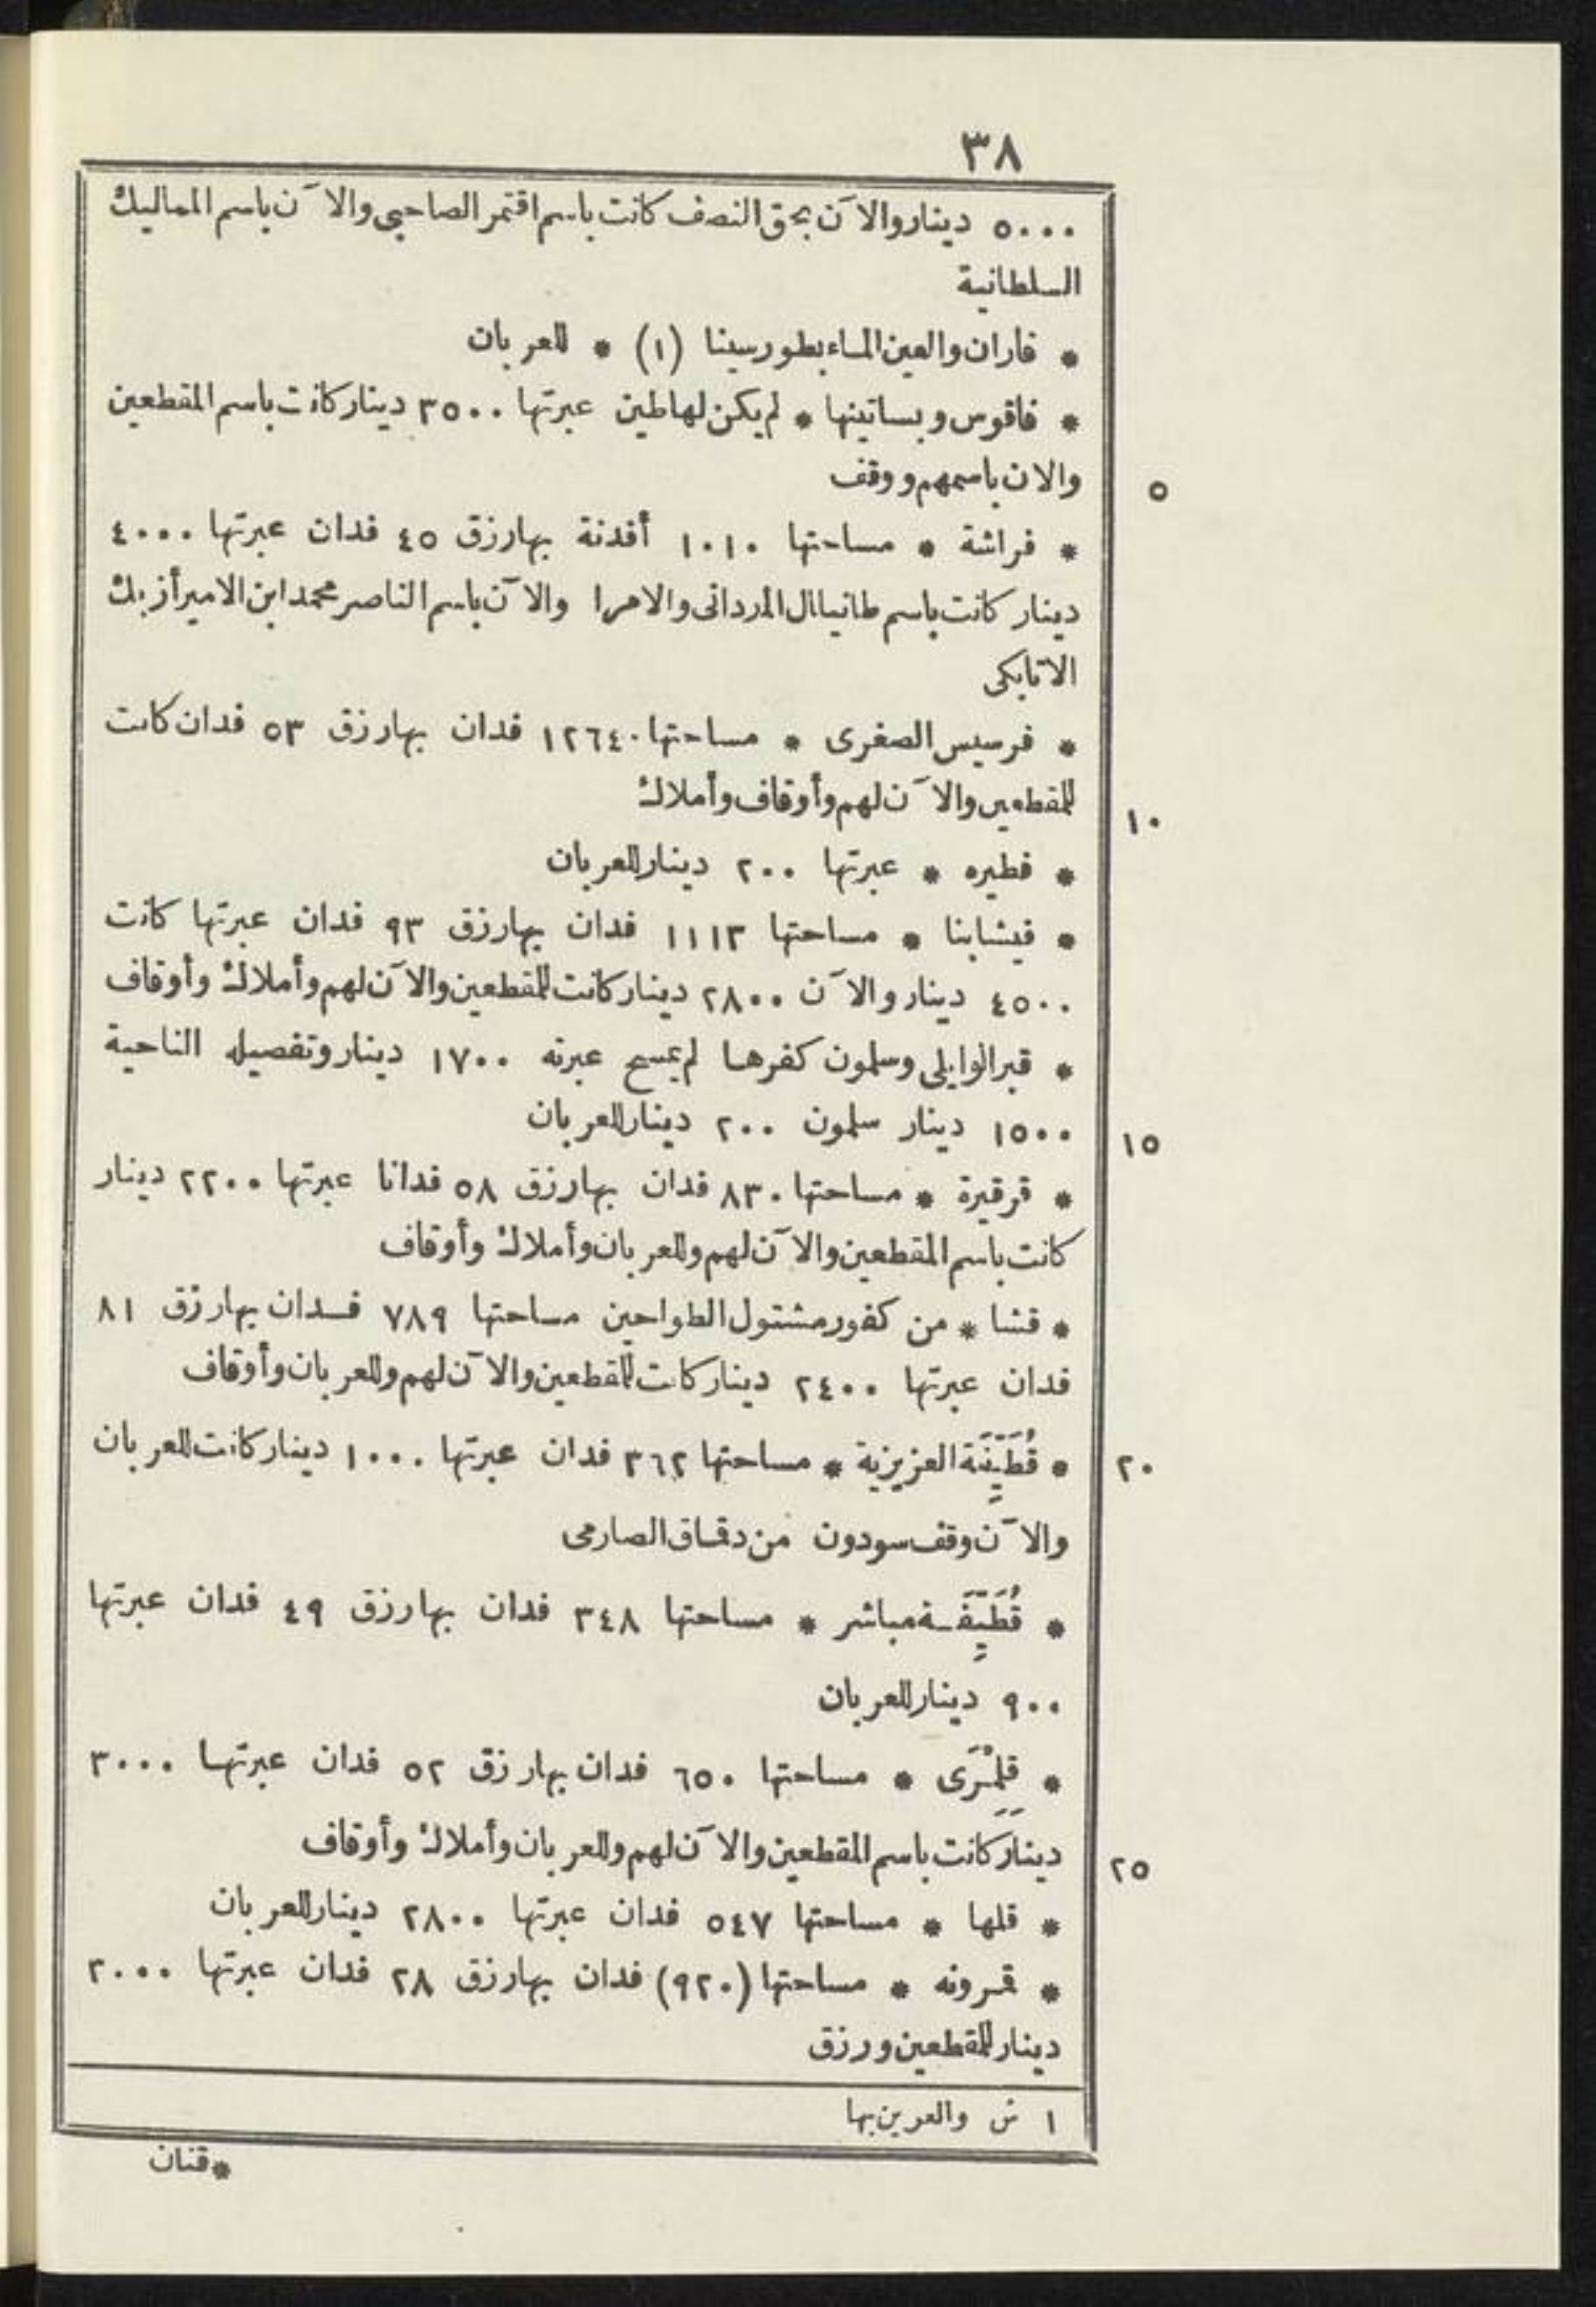 ٣٨
٥٠٠٠ دينار والآن بحق النصف كانت باسم اقتمر الصاحبي والآن باسم المماليك
السلطانية
* فاران والعين الماء بطور سينا (١) * للعربان
* فاقوس وبساتينها * لم يكن لها طين عبرتها ٣٥٠٠ دينار كانت باسم المقطعين
والان باسمهم ووقف
٥
* فراشة * مساحتها ١٠١٠ أفدنة بها رزق ٤٥ فدان عبرتها ٤٠٠٠
دينار كانت باسم طانيال المردانى والامرا والآن باسم الناصر محمد ابن الامير أزبك
الاتابكى
* فرسيس الصغرى * مساحتها ١٢٦٤٠ فدان بها رزق ٥٣ فدان كانت
للمقطعين والآن لهم وأوقاف وأملاك
١٠
* فطيره * عبرتها ٢٠٠ دينار للعربان
* فيشابنا * مساحتها ١١١٣ فدان بها رزق ٩٣ فدان عبرتها كانت
٤٥٠٠ دينار والآن ٢٨٠٠ دينار كانت للمقطعين والآن لهم وأملاك وأوقاف
* قبر الوايلى وسلمون كفرها لم يمسح عبرته ١٧٠٠ دينار وتفصيله الناحية
١٥٠٠ دينار سلمون ٢٠٠ دينار للعربان
١٥
* قرقيرة * مساحتها ٨٣٠ فدان بها رزق ٥٨ فدانا عبرتها ٢٢٠٠ دينار
كانت باسم المقطعين والآن لهم وللعربان وأملاك وأوقاف
* قشا * من كفور مشتول الطواحين مساحتها ٧٨٩ فدان بها رزق ٨١
فدان عبرتها ٢٤٠٠ دينار كانت للمقطعين والآن لهم وللعربان وأوقاف
* قُطَيِّنَة العزيزية * مساحتها ٣٦٢ فدان عبرتها ١٠٠٠ دينار كانت للعربان
٢٠
والآن وقف سودون من دقماق الصارمى
* قُطَيِّفَة مباشر * مساحتها ٣٤٨ فدان بها رزق ٤٩ فدان عبرتها
٩٠٠ دينار للعربان
* قِلِمْرَى * مساحتها ٦٥٠ فدان بها رزق ٥٢ فدان عبرتها ٣٠٠٠
دينار كانت باسم المقطعين والآن لهم وللعربان وأملاك وأوقاف
٢٥
* قلها * مساحتها ٥٤٧ فدان عبرتها ٢٨٠٠ دينار للعربان
* قمرونه * مساحتها (٩٢٠) فدان بها رزق ٢٨ فدان عبرتها ٢٠٠٠
دينار للمقطعين ورزق
١ ش والعرين بها
* قنان